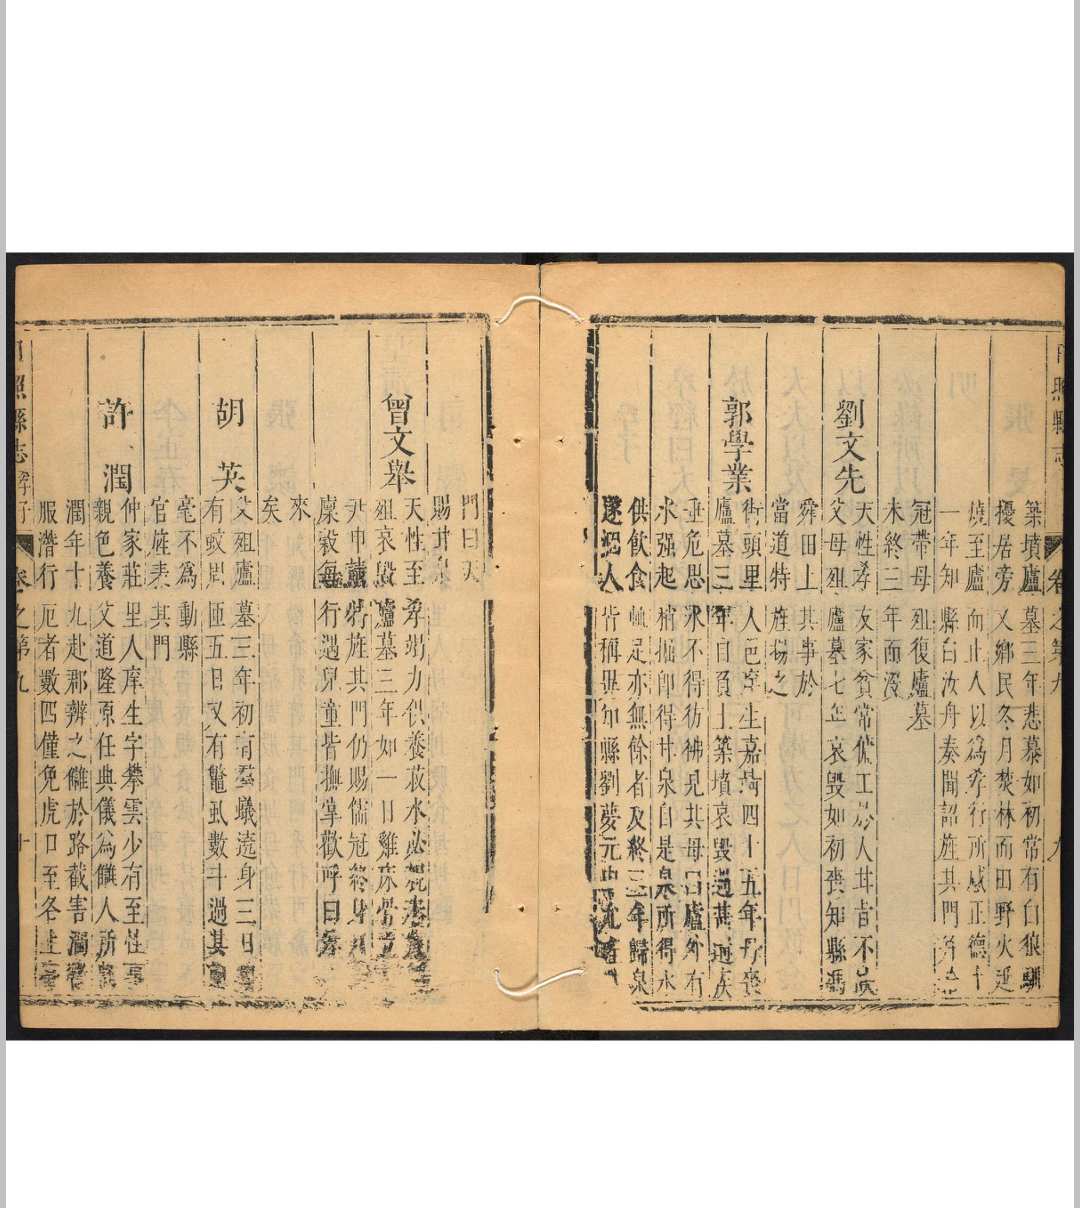 築墳廬墓三年悲慕如初常有白狼馴
擾居旁又鄉民冬月焚林而田野火延
燒至廬而止人以為孝行所感正德十
一年知縣白汝舟奏聞詔旌其門
冠帶母殂復廬墓
未終三年而沒
劉文先
天性孝友家貧常傭工於人甘旨不
父母殂廬墓七年哀毀如初喪知縣馮
舜田上其事於
當道特旌揚之
郭學業
街頭里人邑庠生嘉靖四十五年母喪
廬墓三年自負土築墳哀毀過甚遘疾
垂危思水不得彷彿見其母曰廬外有
水强起稍掘即得甘泉自是泉所得水
供飲食無足亦無餘者及終三年歸泉
遂涸人皆稱異知縣劉夢元
門曰天
賜甘泉
曾文舉
天性至孝竭力供養菽水必
殂哀毀廬墓三年如一日雞
尹申
旌其門仍賜儒冠終身
廩穀每行遇兒童皆撫掌歡呼曰
來
矣
胡英
父殂廬墓三年初有羣蟻遶身三日
有蚊周匝五日又有鼈虱數斗過其
毫不為動縣
官旌表其門
許潤
仲家莊里人庠生字攀雲少有至性
親色養父道隆原任典儀為讎人所
潤年十九赴郡辨之讎於路截害潤
服潛行厄者數四僅免虎口至各
日照縣志
孝子
卷之第九
十
日照縣志
卷之第九
九